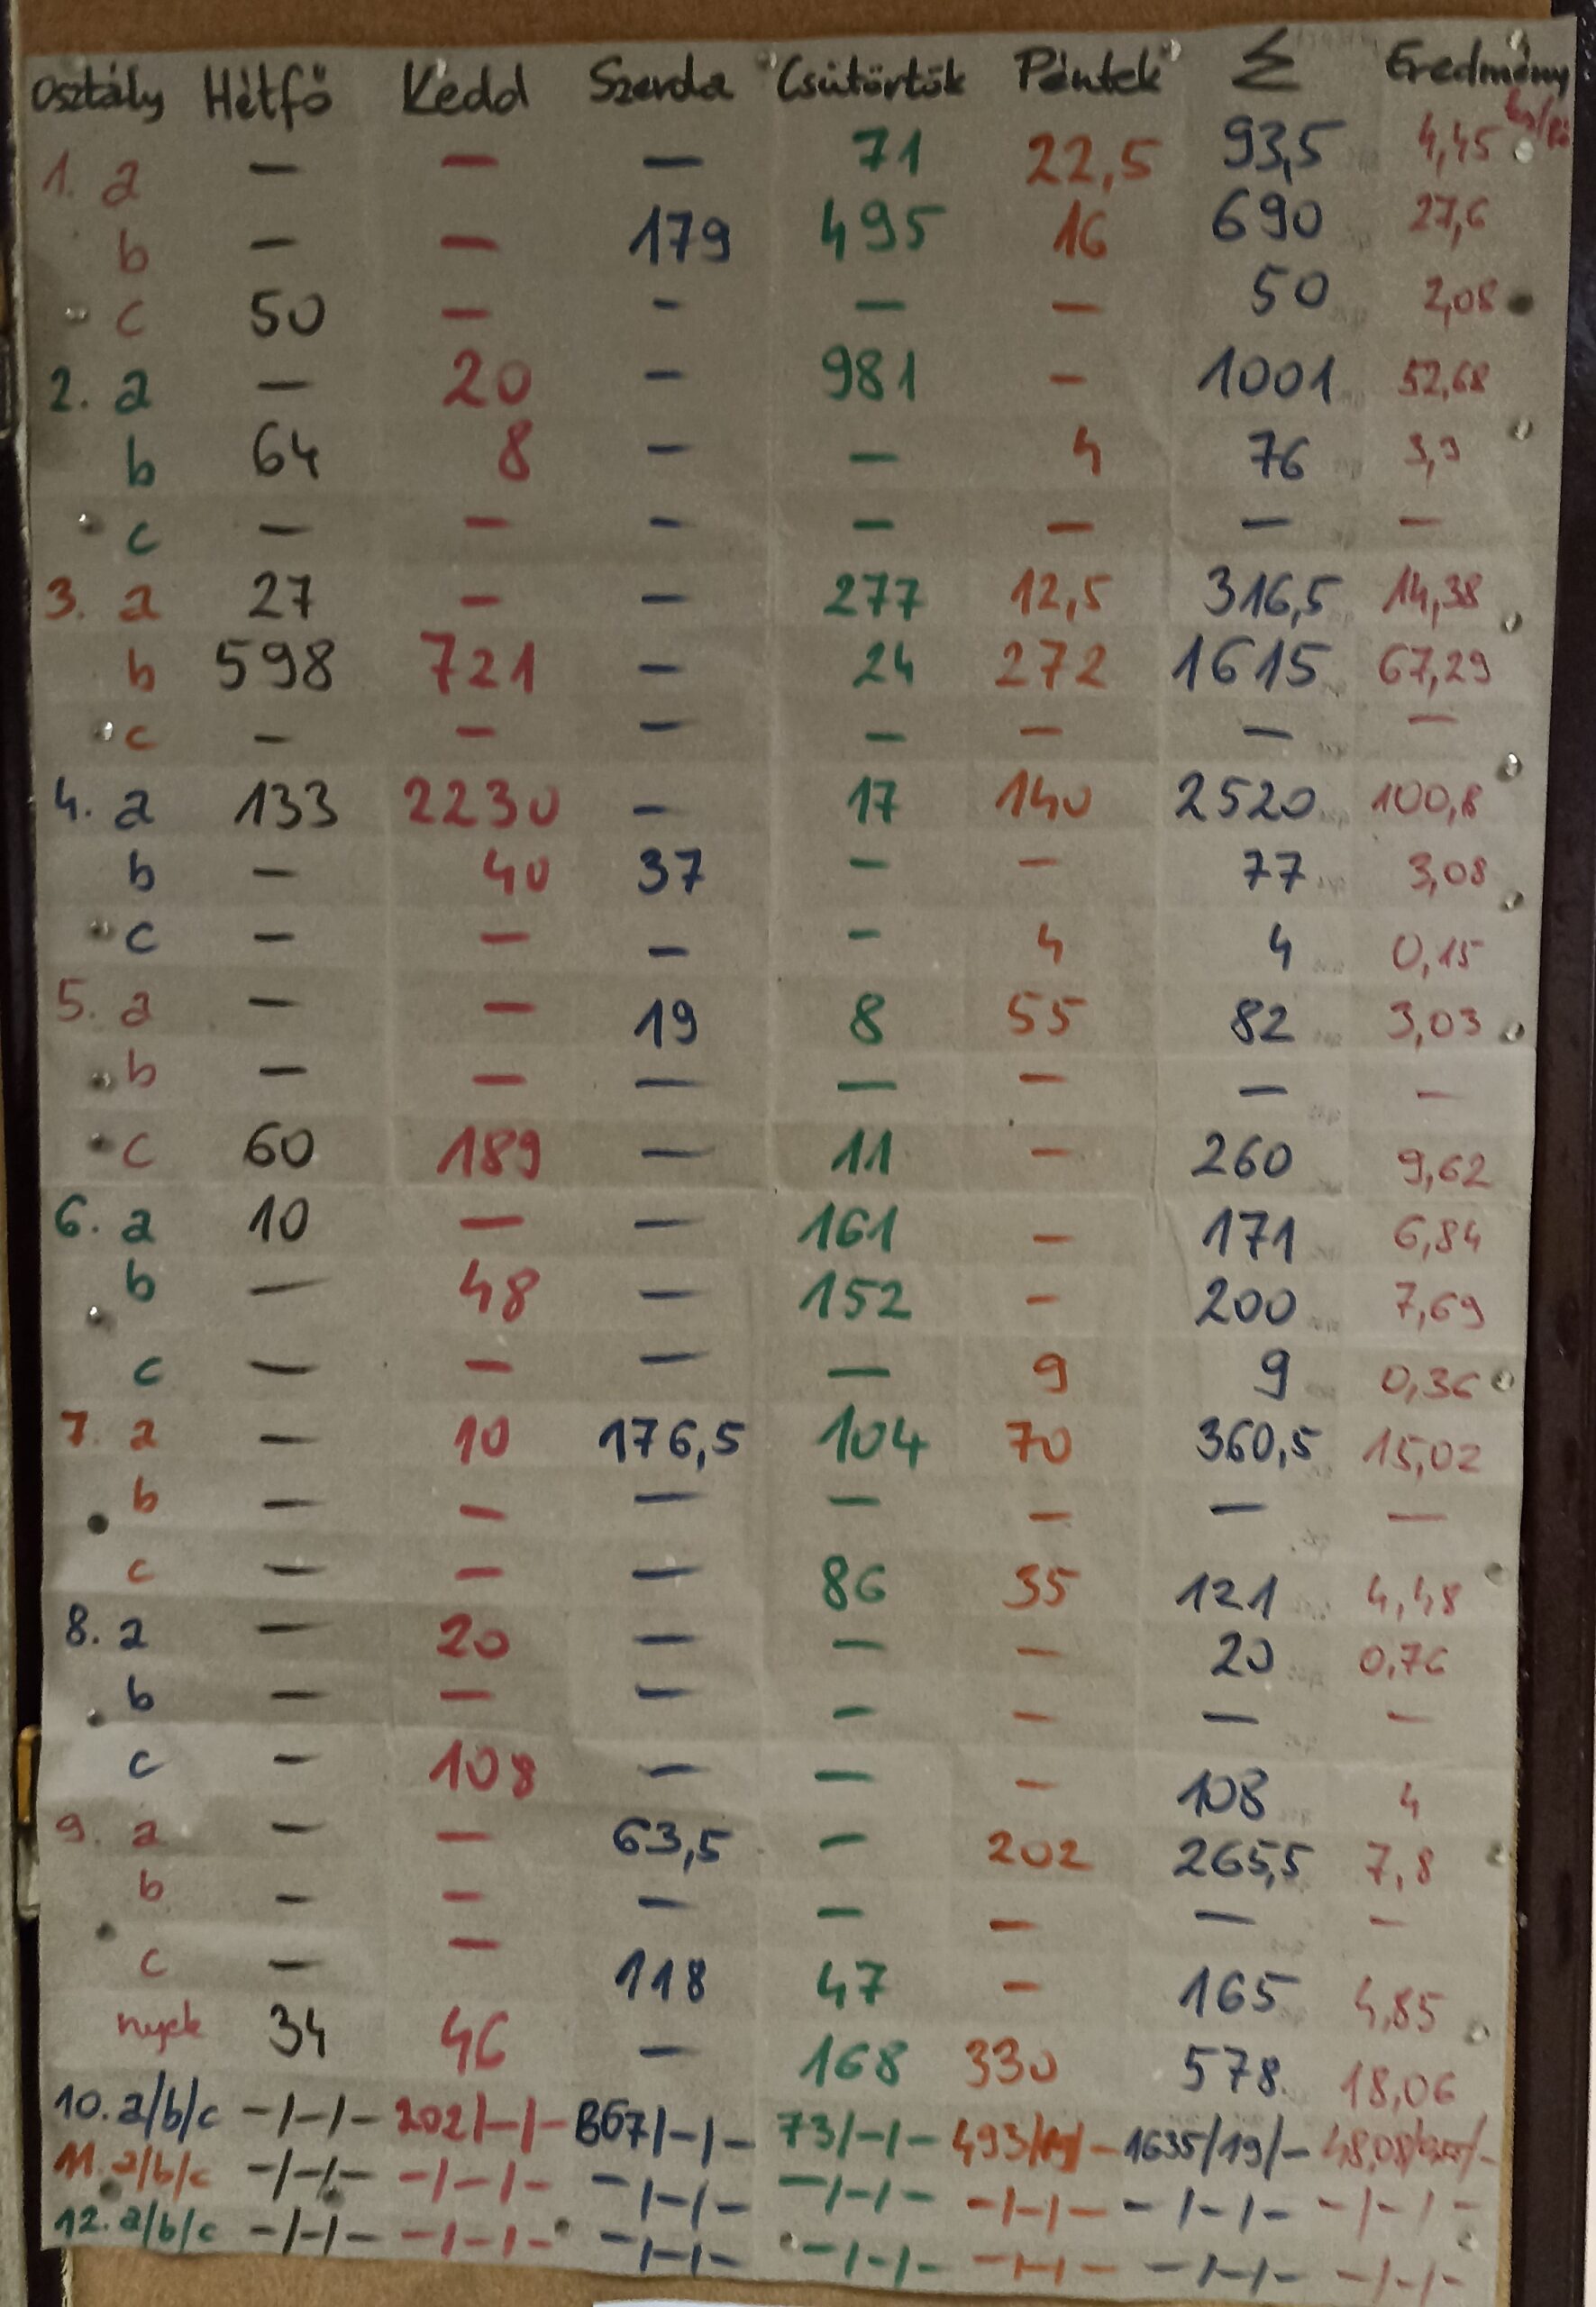 Osztály Hétfő Kedd Szerda Csütörtök Péntek Σ Eredmény
1. a — — — 71 22,5 93,5 4,45
b — — 179 495 16 690 27,6
c 50 — - — — 50 2,08
2. a — 20 - 981 - 1001 52,68
b 64 8 — — 4 76 3,3
c — — - — — — —
3. a 27 — — 277 12,5 316,5 14,38
b 598 721 — 24 272 1615 67,29
c — — — — — — —
4. a 133 2230 — 17 140 2520 100,8
b — 40 37 — — 77 3,08
c — — — - 4 4 0,15
5. a — — 19 8 55 82 3,03
b — — — — — — —
c 60 189 — 11 — 260 9,62
6. a 10 — — 161 — 171 6,84
b — 48 — 152 — 200 7,69
c — — — — 9 9 0,36
7. a — 10 176,5 104 70 360,5 15,02
b — — — — — — —
c — — — 86 35 121 4,48
8. a — 20 — — — 20 0,76
b — — — — — — —
c — 108 — — — 108 4
9. a — — 63,5 — 202 265,5 7,8
b — — — — — — —
c — — 118 47 — 165 4,85
nyek 34 46 — 168 330 578 18,06
10. a/b/c -/-/- 202/-/- 867/-/- 73/-/- 493/19/- 1635/19/-
11. a/b/c -/-/- -/-/- -/-/- -/-/- -/-/- -/-/- -/-/-
12. a/b/c -/-/- -/-/- -/-/- -/-/- -/-/- -/-/- -/-/-